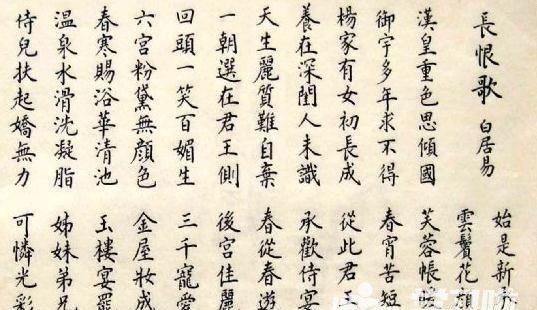 長恨歌 白居易
漢皇重色思傾國
御宇多年求不得
楊家有女初長成
養在深閨人未識
天生麗質難自棄
一朝選在君王側
回頭一笑百媚生
六宮粉黛無顏色
春寒賜浴華清池
溫泉水滑洗凝脂
侍兒扶起嬌無力
始是新
雲鬢花顏
芙蓉帳暖
春宵苦短
從此君王
承歡侍宴
春從春遊
後宮佳麗
三千寵愛
金屋妝成
玉樓宴罷
姊妹弟兄
可憐光彩